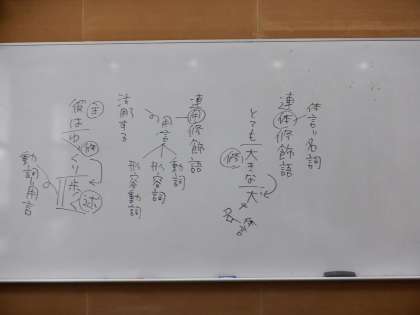 体言り名詞
連体修飾語
とても大きな犬
修
名
連用修飾語
用言
動詞
形容詞
形容動詞
活用する
主
彼はゆっくり歩く
修
述
動詞用言